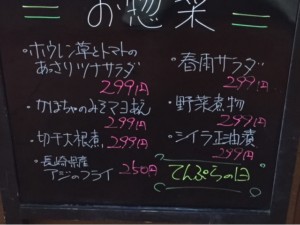 お惣菜
・ホウレン草とトマトの
あっさりツナサラダ
299円
・かぼちゃのみそマヨ和え
299円
・切干大根煮 299円
・長崎県産
アジのフライ 250円
・春雨サラダ
299円
・野菜煮物
299円
・シイラ正油漬
299円
てんぷらの日